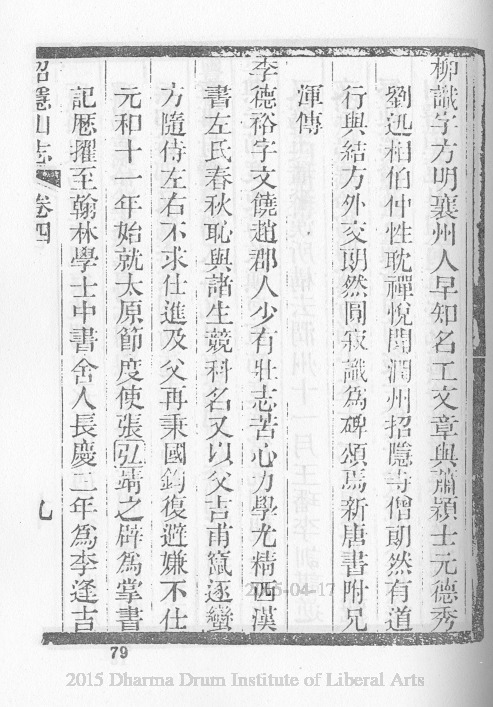 柳識字方明襄州人早知名工文章與蕭頴士元德秀
劉迅相伯仲性耽禪悅聞潤州招隱寺僧朗然有道
行與結方外交朗然圓寂識為碑頌焉新唐書附兄
渾傳
李德裕字文饒趙郡人少有壯志苦心力學尤精西漢
書左氏春秋恥與諸生競科名又以父吉甫竄逐蠻
方隨侍左右不求仕進及父再秉國鈞復避嫌不仕
元和十一年始就太原節度使張弘靖之辟為掌書
記歷擢至翰林學士中書舍人長慶二年為李逢吉
招隱山志 卷四 九
79
2015-04-17
2015 Dharma Drum Institute of Liberal Arts